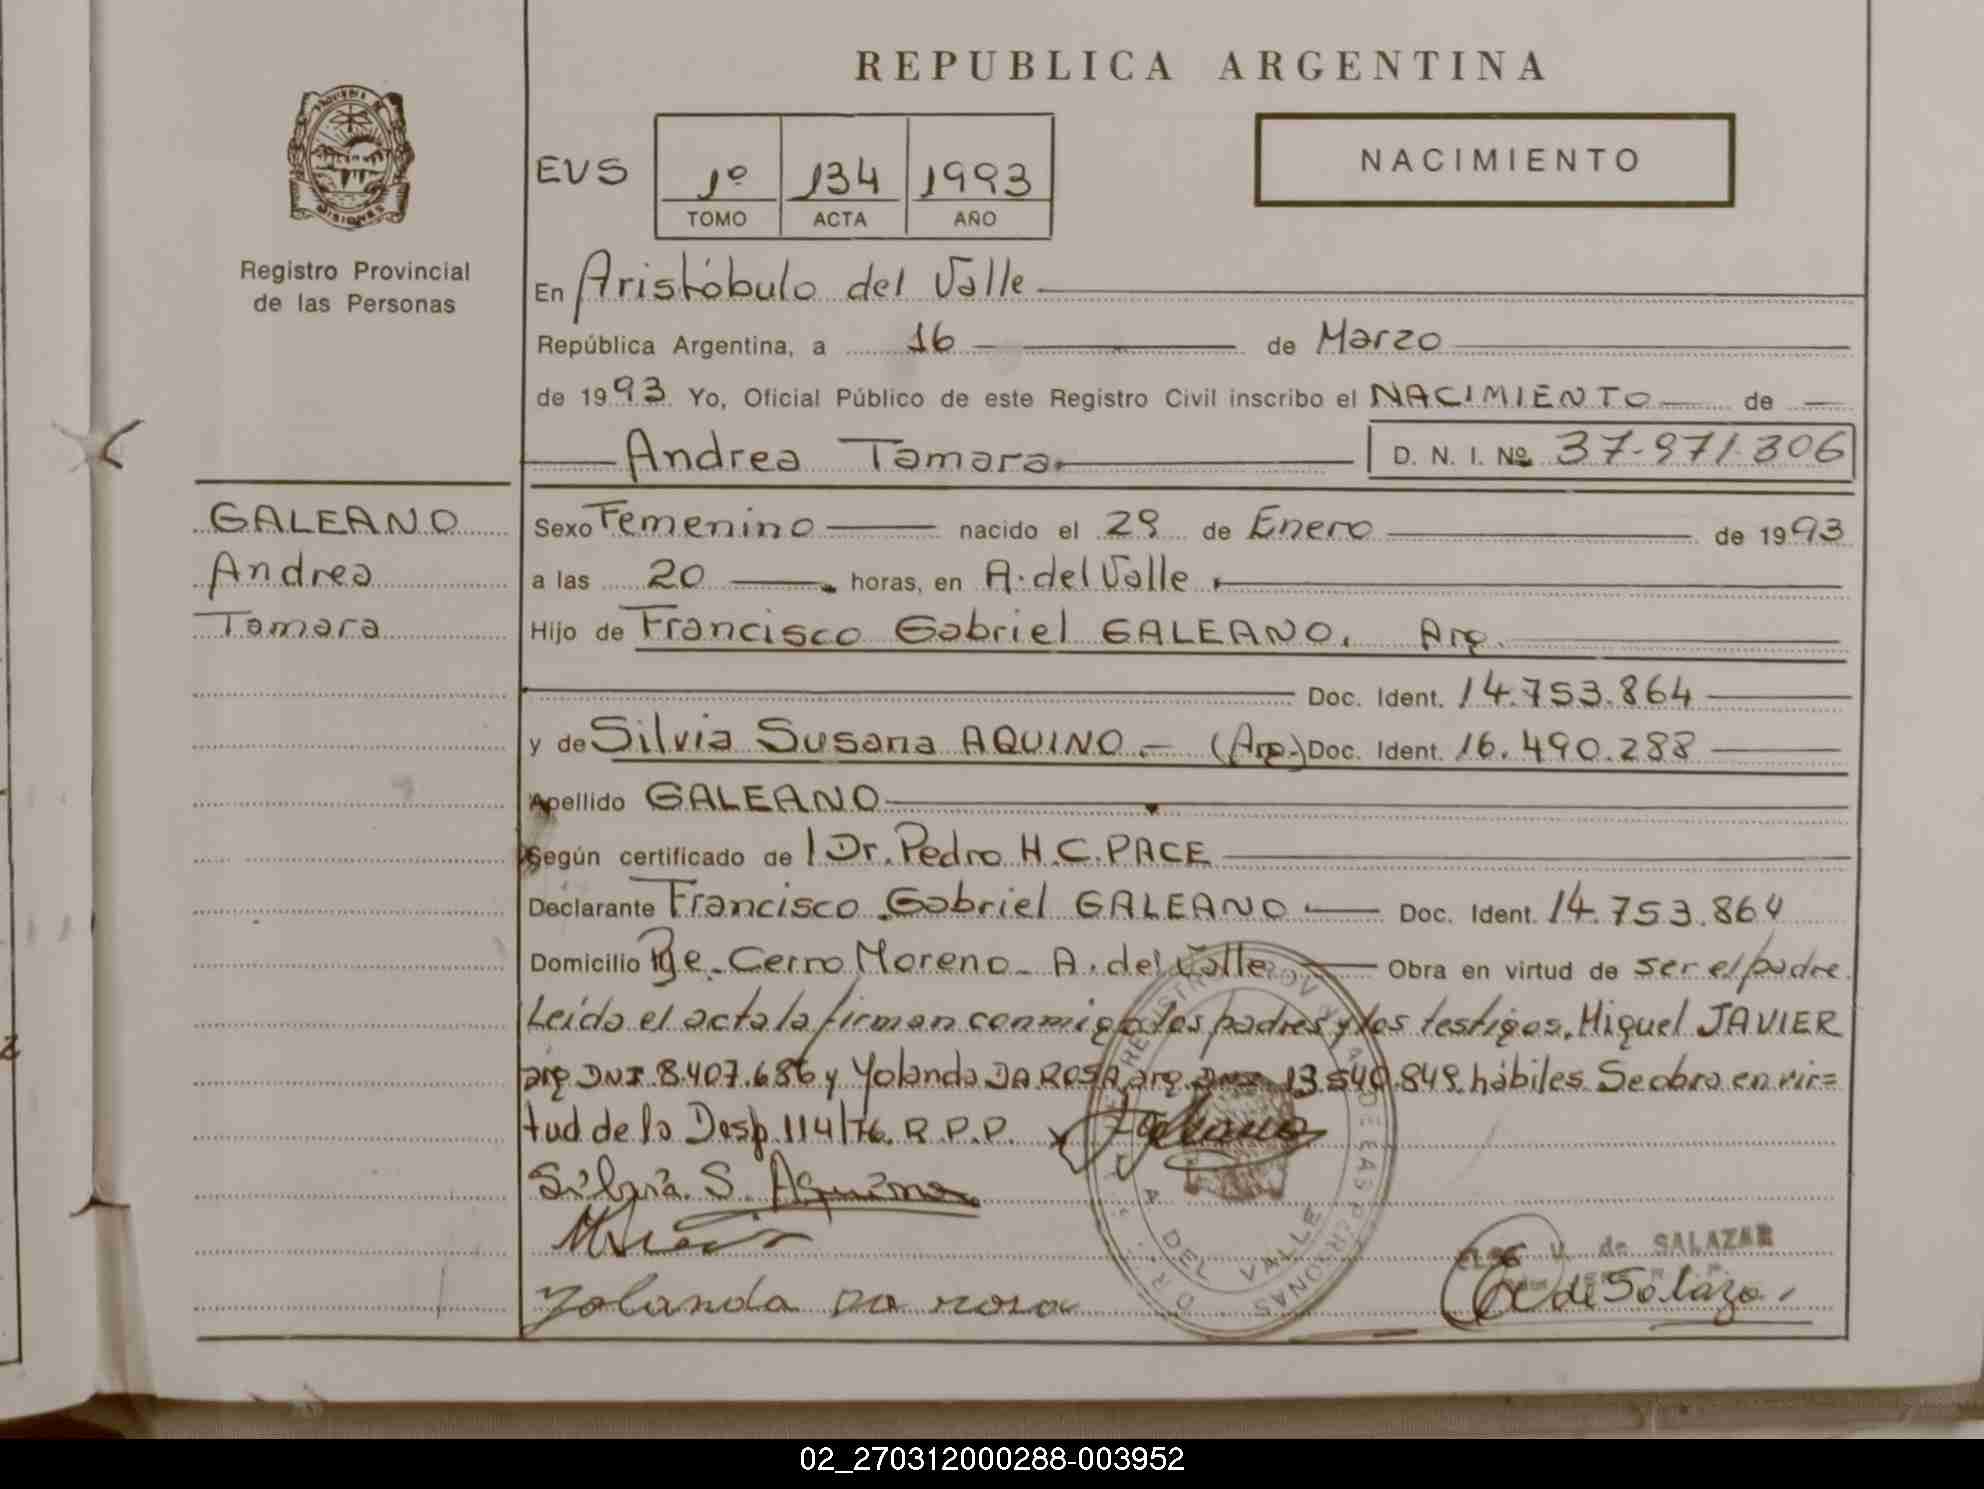 REPUBLICA ARGENTINA
EVS 1º 134 1993
TOMO ACTA AÑO
NACIMIENTO
PROVINCIA DE MISIONES
Registro Provincial
de las Personas
En Aristóbulo del Valle
República Argentina, a 16 de Marzo
de 1993 Yo, Oficial Público de este Registro Civil inscribo el NACIMIENTO de
Andrea Tamara D. N. I. Nº 37.971.306
GALEANO
Andrea
Tamara
Sexo Femenino nacido el 29 de Enero de 1993
a las 20 horas, en A. del Valle
Hijo de Francisco Gabriel GALEANO. Arg.
Doc. Ident. 14.753.864
y de Silvia Susana AQUINO.- (Arg.) Doc. Ident. 16.490.288
Apellido GALEANO
Según certificado de l Dr. Pedro H.C. PACE
Declarante Francisco Gabriel GALEANO Doc. Ident. 14.753.864
Domicilio Pje. Cerro Moreno - A. del Valle Obra en virtud de ser el padre.
Leída el acta la firman conmigo los padres y los testigos. Miguel JAVIER
arg DNI 8.407.686 y Yolanda DA ROSA arg. DNI 13.540.849 hábiles. Se obra en vir=
tud de la Desp. 114/76. R.P.P.
Silvia S. Aquino
Yolanda Da rosa
de SALAZAR
E de Salazar
REGISTRO PROVINCIAL DE LAS PERSONAS
A. DEL VALLE
02_270312000288-003952